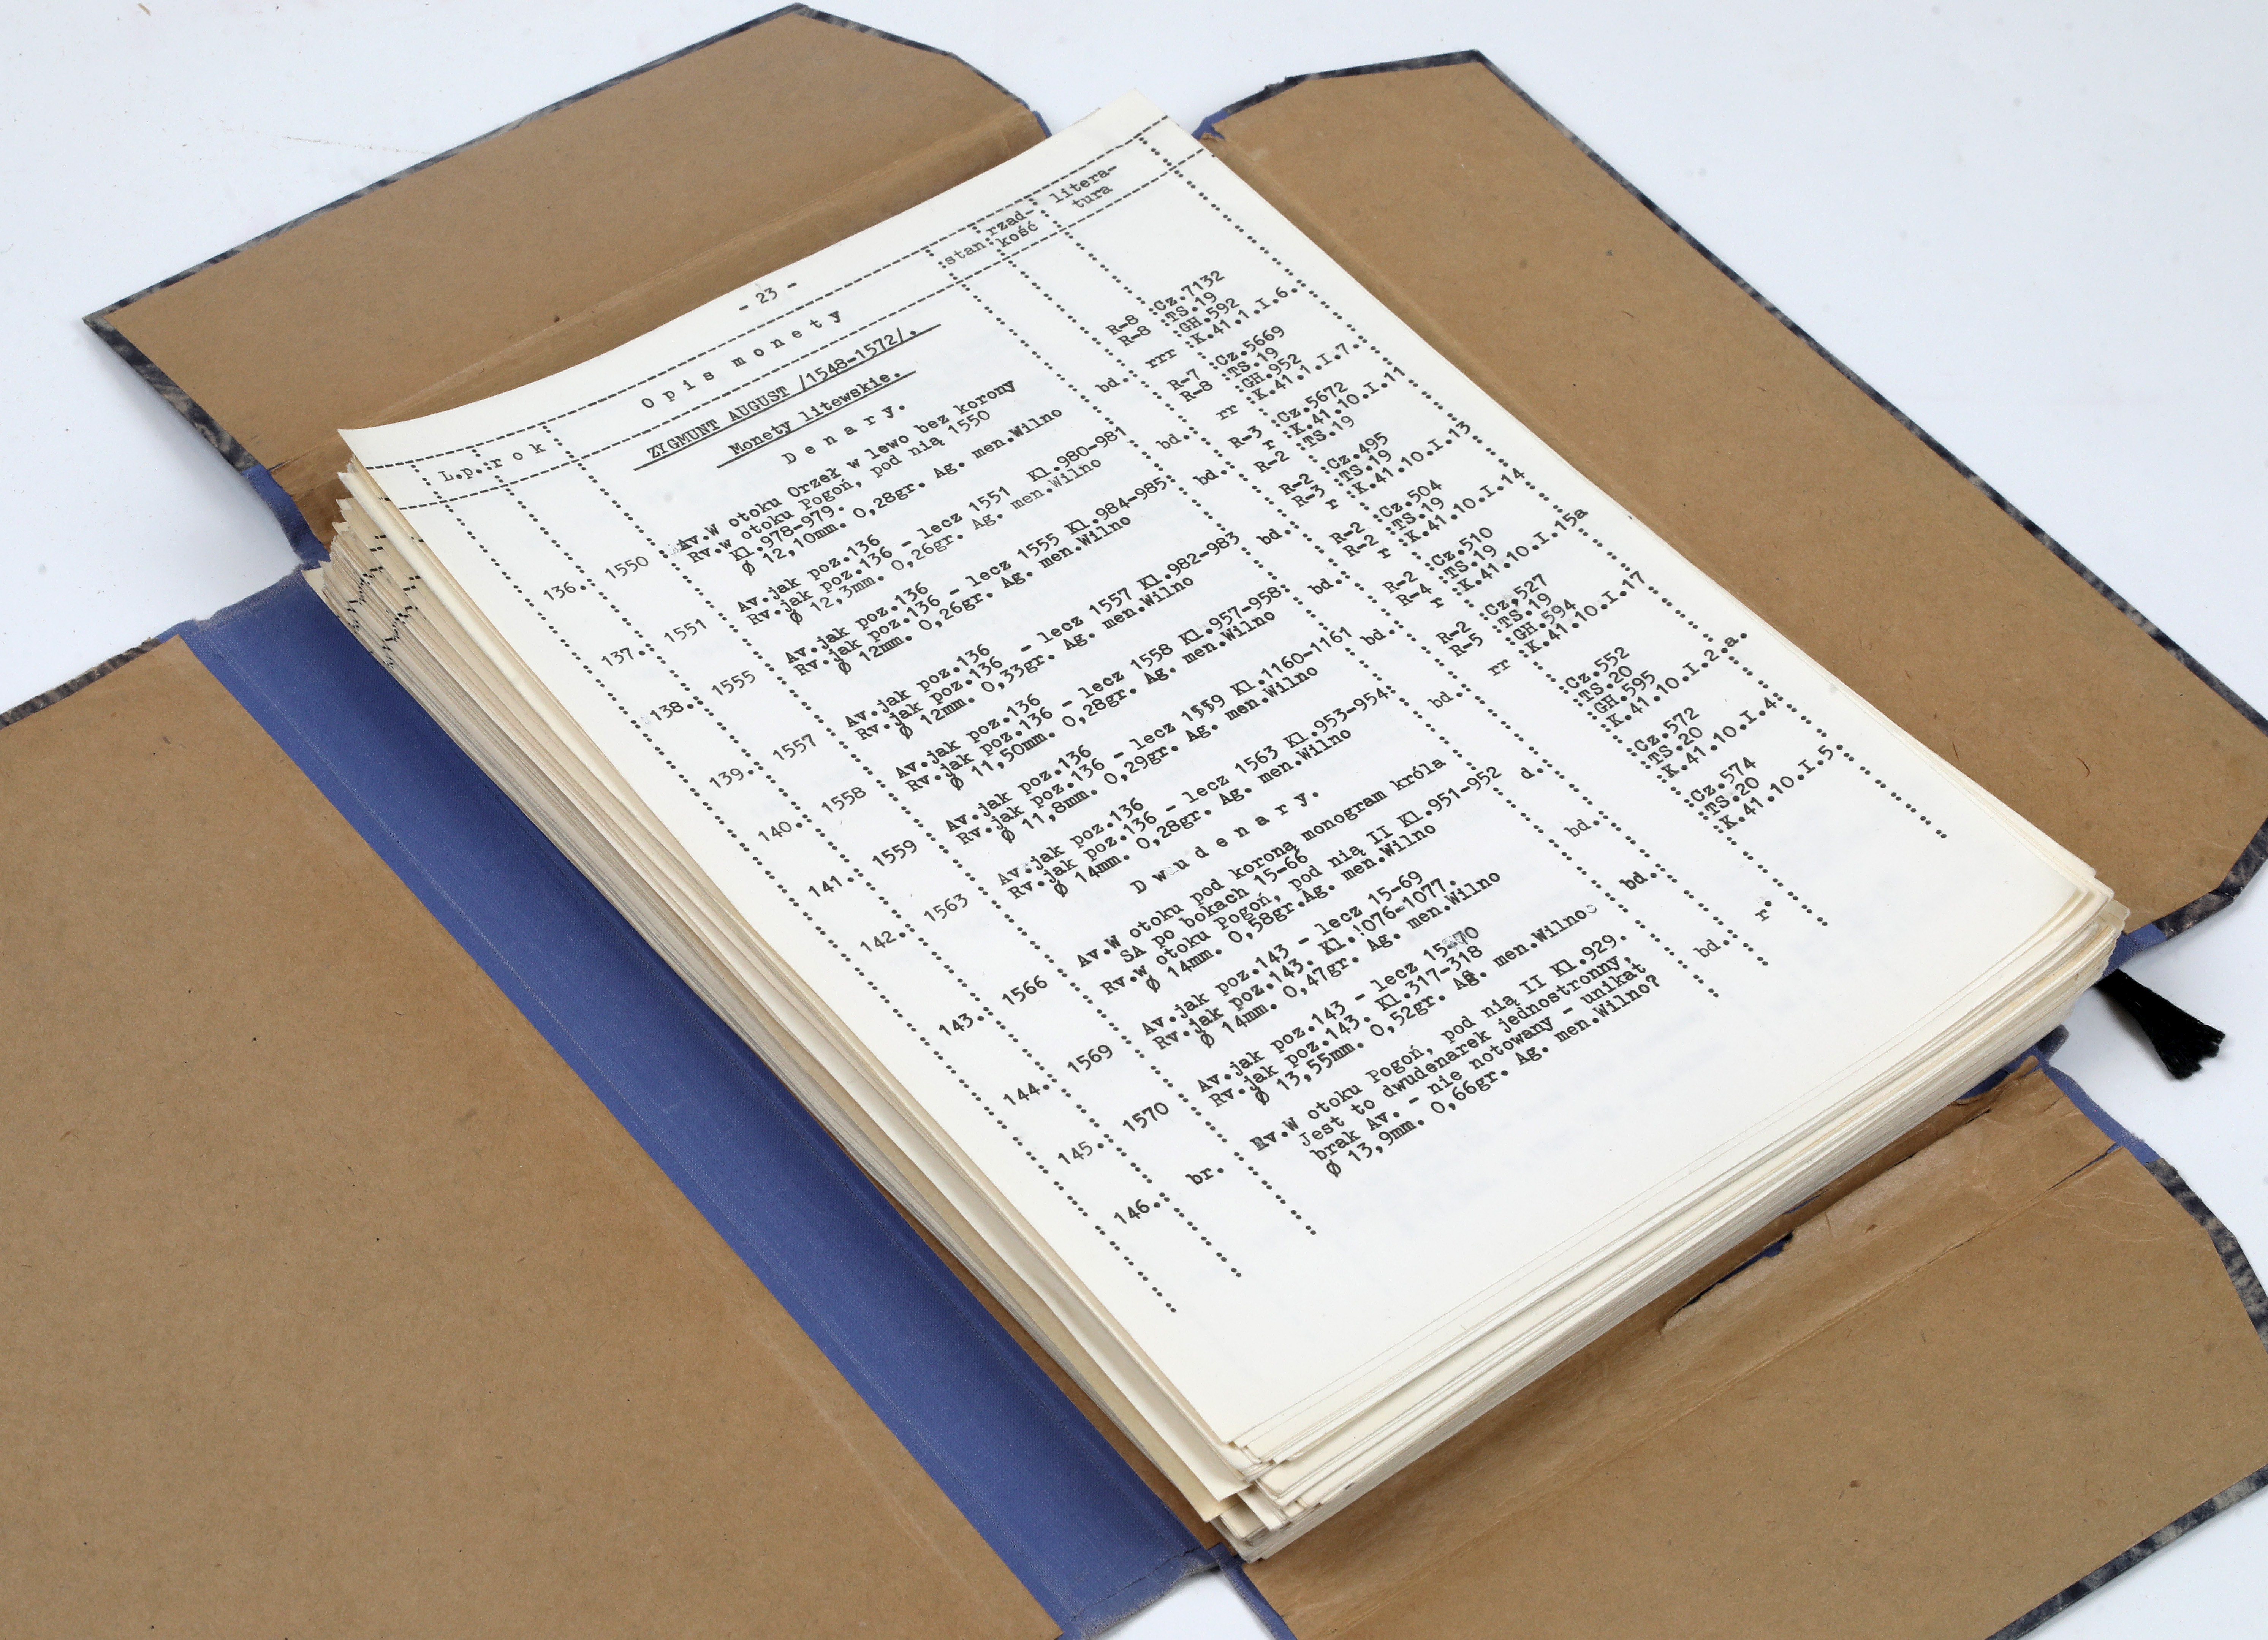 - 23 -
L.p.: r o k : O p i s m o n e t y :stan: rzad- : litera-
kość : tura
ZYGMUNT AUGUST /1548-1572/.
Monety litewskie.
D e n a r y.
136.: 1550 : Av.W otoku Orzeł w lewo bez korony R-8 :Cz.7132
Rv.w otoku Pogoń, pod nią 1550 R-8 :TS.19
Kl.978-979. :GH.592
Ø 12,10mm. 0,28gr. Ag. men.Wilno bd.: rrr :K.41.1.I.6.
R-7 :Cz.5669
137.: 1551 : Av.jak poz.136 R-8 :TS.19
Rv.jak poz.136 - lecz 1551 Kl.980-981 :GH.952
Ø 12,3mm. 0,26gr. Ag. men.Wilno bd.: rr :K.41.1.I.7.
138.: 1555 : Av.jak poz.136 R-3 :Cz.5672
Rv.jak poz.136 - lecz 1555 Kl.984-985: bd.: r :K.41.10.I.11
Ø 12mm. 0,26gr. Ag. men.Wilno R-2 :TS.19
139.: 1557 : Av.jak poz.136 R-2 :Cz.495
Rv.jak poz.136 - lecz 1557 Kl.982-983 R-3 :TS.19
Ø 12mm. 0,33gr. Ag. men.Wilno bd.: r :K.41.10.I.13
140.: 1558 : Av.jak poz.136 R-2 :Cz.504
Rv.jak poz.136 - lecz 1558 Kl.957-958: R-2 :TS.19
Ø 11,50mm. 0,28gr. Ag. men.Wilno bd.: r :K.41.10.I.14
141.: 1559 : Av.jak poz.136 R-2 :Cz.510
Rv.jak poz.136 - lecz 1559 Kl.1160-1161 R-4 :TS.19
Ø 11,8mm. 0,29gr. Ag. men.Wilno bd.: r :K.41.10.I.15a
R-2 :Cz.527
142.: 1563 : Av.jak poz.136 R-5 :TS.19
Rv.jak poz.136 - lecz 1563 Kl.953-954: :GH.594
Ø 14mm. 0,28gr. Ag. men.Wilno bd.: rr :K.41.10.I.17
D w u d e n a r y.
143.: 1566 : Av.W otoku pod koroną monogram króla :Cz.552
SA po bokach 15-66 :TS.20
Rv.w otoku Pogoń, pod nią II Kl.951-952 :GH.595
Ø 14mm. 0,58gr.Ag. men.Wilno d.: :K.41.10.I.2.a.
144.: 1569 : Av.jak poz.143 - lecz 15-69 :Cz.572
Rv.jak poz.143. Kl.1076-1077. :TS.20
Ø 14mm. 0,47gr. Ag. men.Wilno bd.: :K.41.10.I.4.
145.: 1570 : Av.jak poz.143 - lecz 15-70 :Cz.574
Rv.jak poz.143. Kl.317-318 :TS.20
Ø 13,55mm. 0,52gr. Ag. men.Wilno bd.: :K.41.10.I.5.
146.: br. : Rv.W otoku Pogoń, pod nią II Kl.929.
Jest to dwudenarek jednostronny,
brak Av. - nie notowany - unikat
Ø 13,9mm. 0,66gr. Ag. men.Wilno? bd.: r.